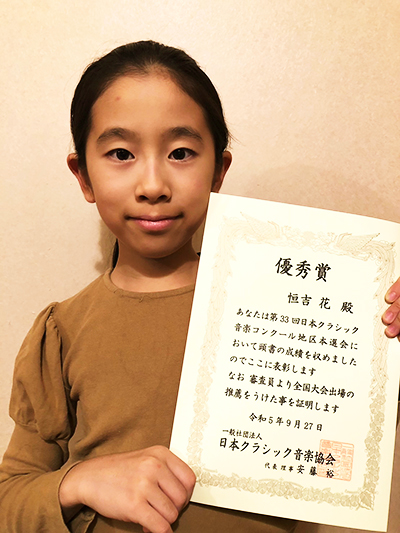 優秀賞
恒吉 花 殿
あなたは第33回日本クラシック
音楽コンクール地区本選会に
おいて頭書の成績を収めました
のでここに表彰します
なお 審査員より全国大会出場の
推薦をうけた事を証明します
令和5年9月27日
一般社団法人
日本クラシック音楽協会
代表理事 安藤 裕